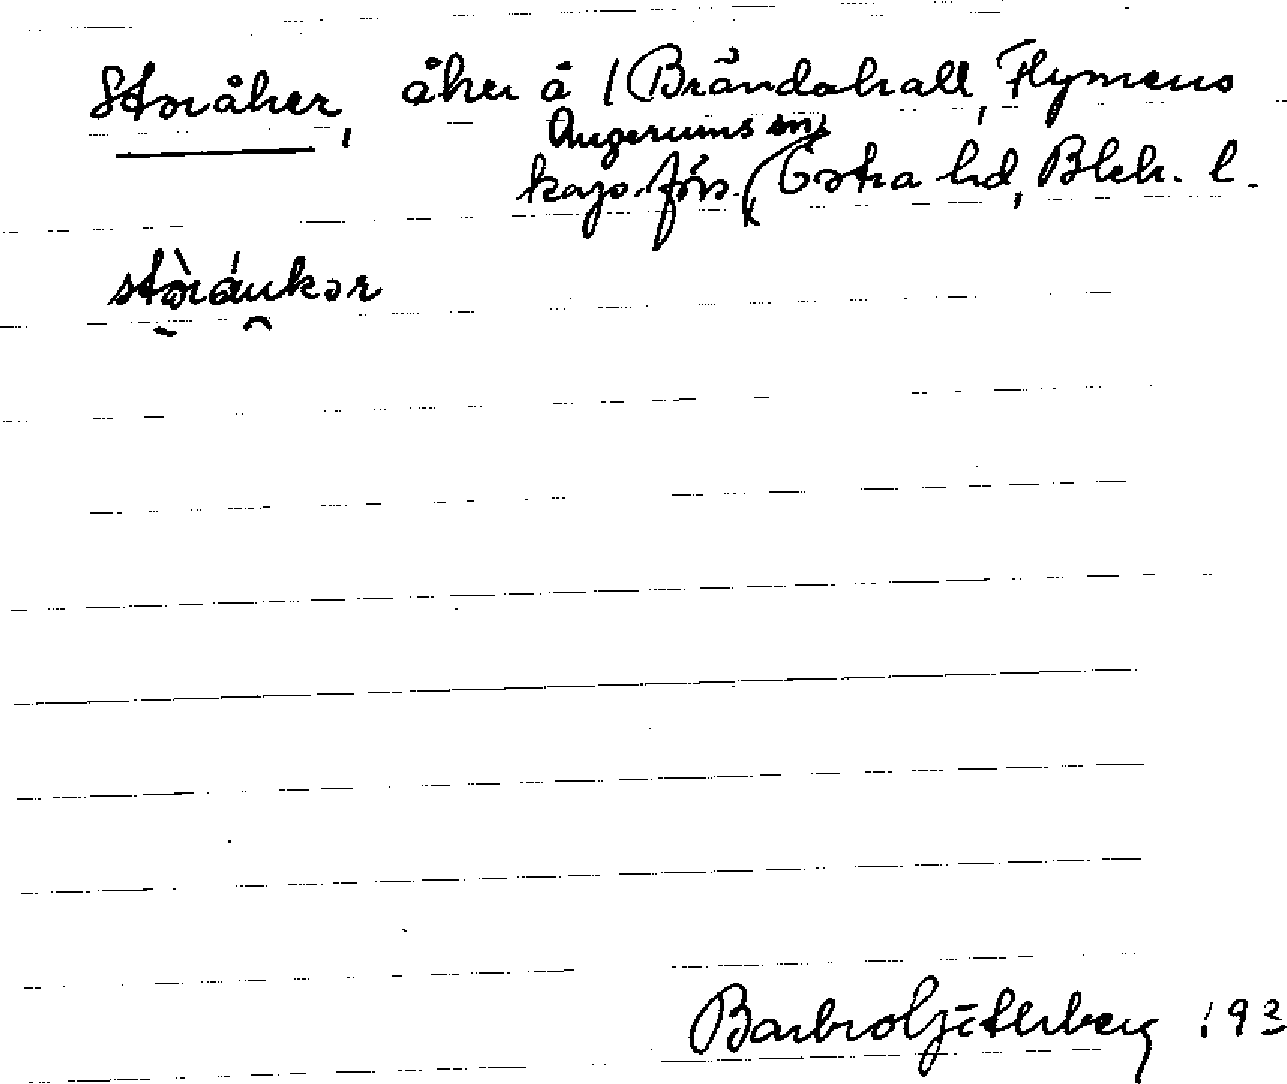 Storåker, åker å 1 Brändahall, Flymens
Augerums sn,
kapsförs. Östra hd, Blek. l.
stòráukər
Barbro Götherberg 193